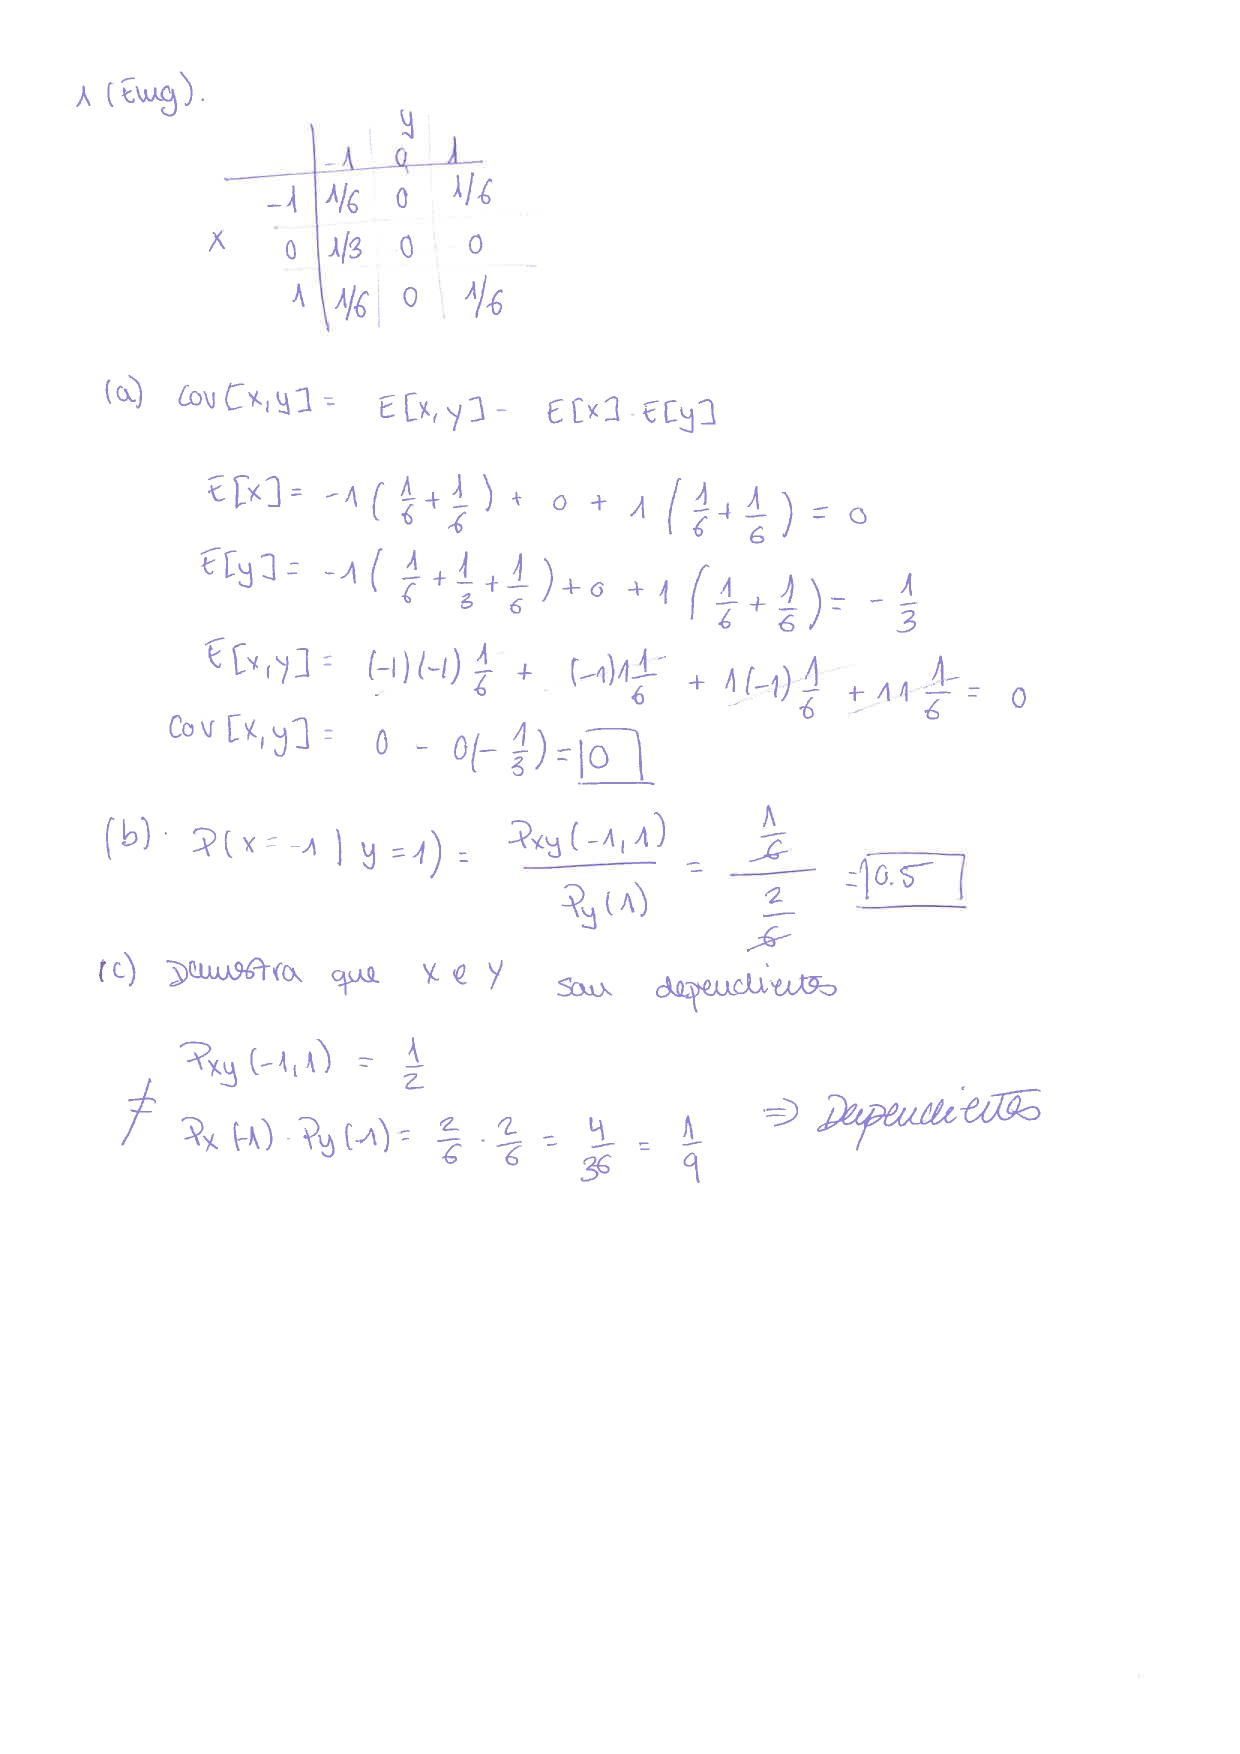 1 (Eng).
y
-1 0 1
-1 1/6 0 1/6
x 0 1/3 0 0
1 1/6 0 1/6
(a) Cov[x,y] = E[x,y] - E[x] · E[y]
E[x] = -1 (1/6 + 1/6) + 0 + 1 (1/6 + 1/6) = 0
E[y] = -1 (1/6 + 1/3 + 1/6) + 0 + 1 (1/6 + 1/6) = - 1/3
E[x,y] = (-1)(-1) 1/6 + (-1)1 1/6 + 1(-1) 1/6 + 1 1 1/6 = 0
Cov[x,y] = 0 - 0(- 1/3) = 0
(b). P(x = -1 | y = 1) = Pxy(-1,1) / Py(1) = (1/6) / (2/6) = 0.5
(c) Demostra que x e y son dependientes
Pxy(-1,1) = 1/2
≠ Px(-1) · Py(-1) = 2/6 · 2/6 = 4/36 = 1/9 ⇒ Dependientes